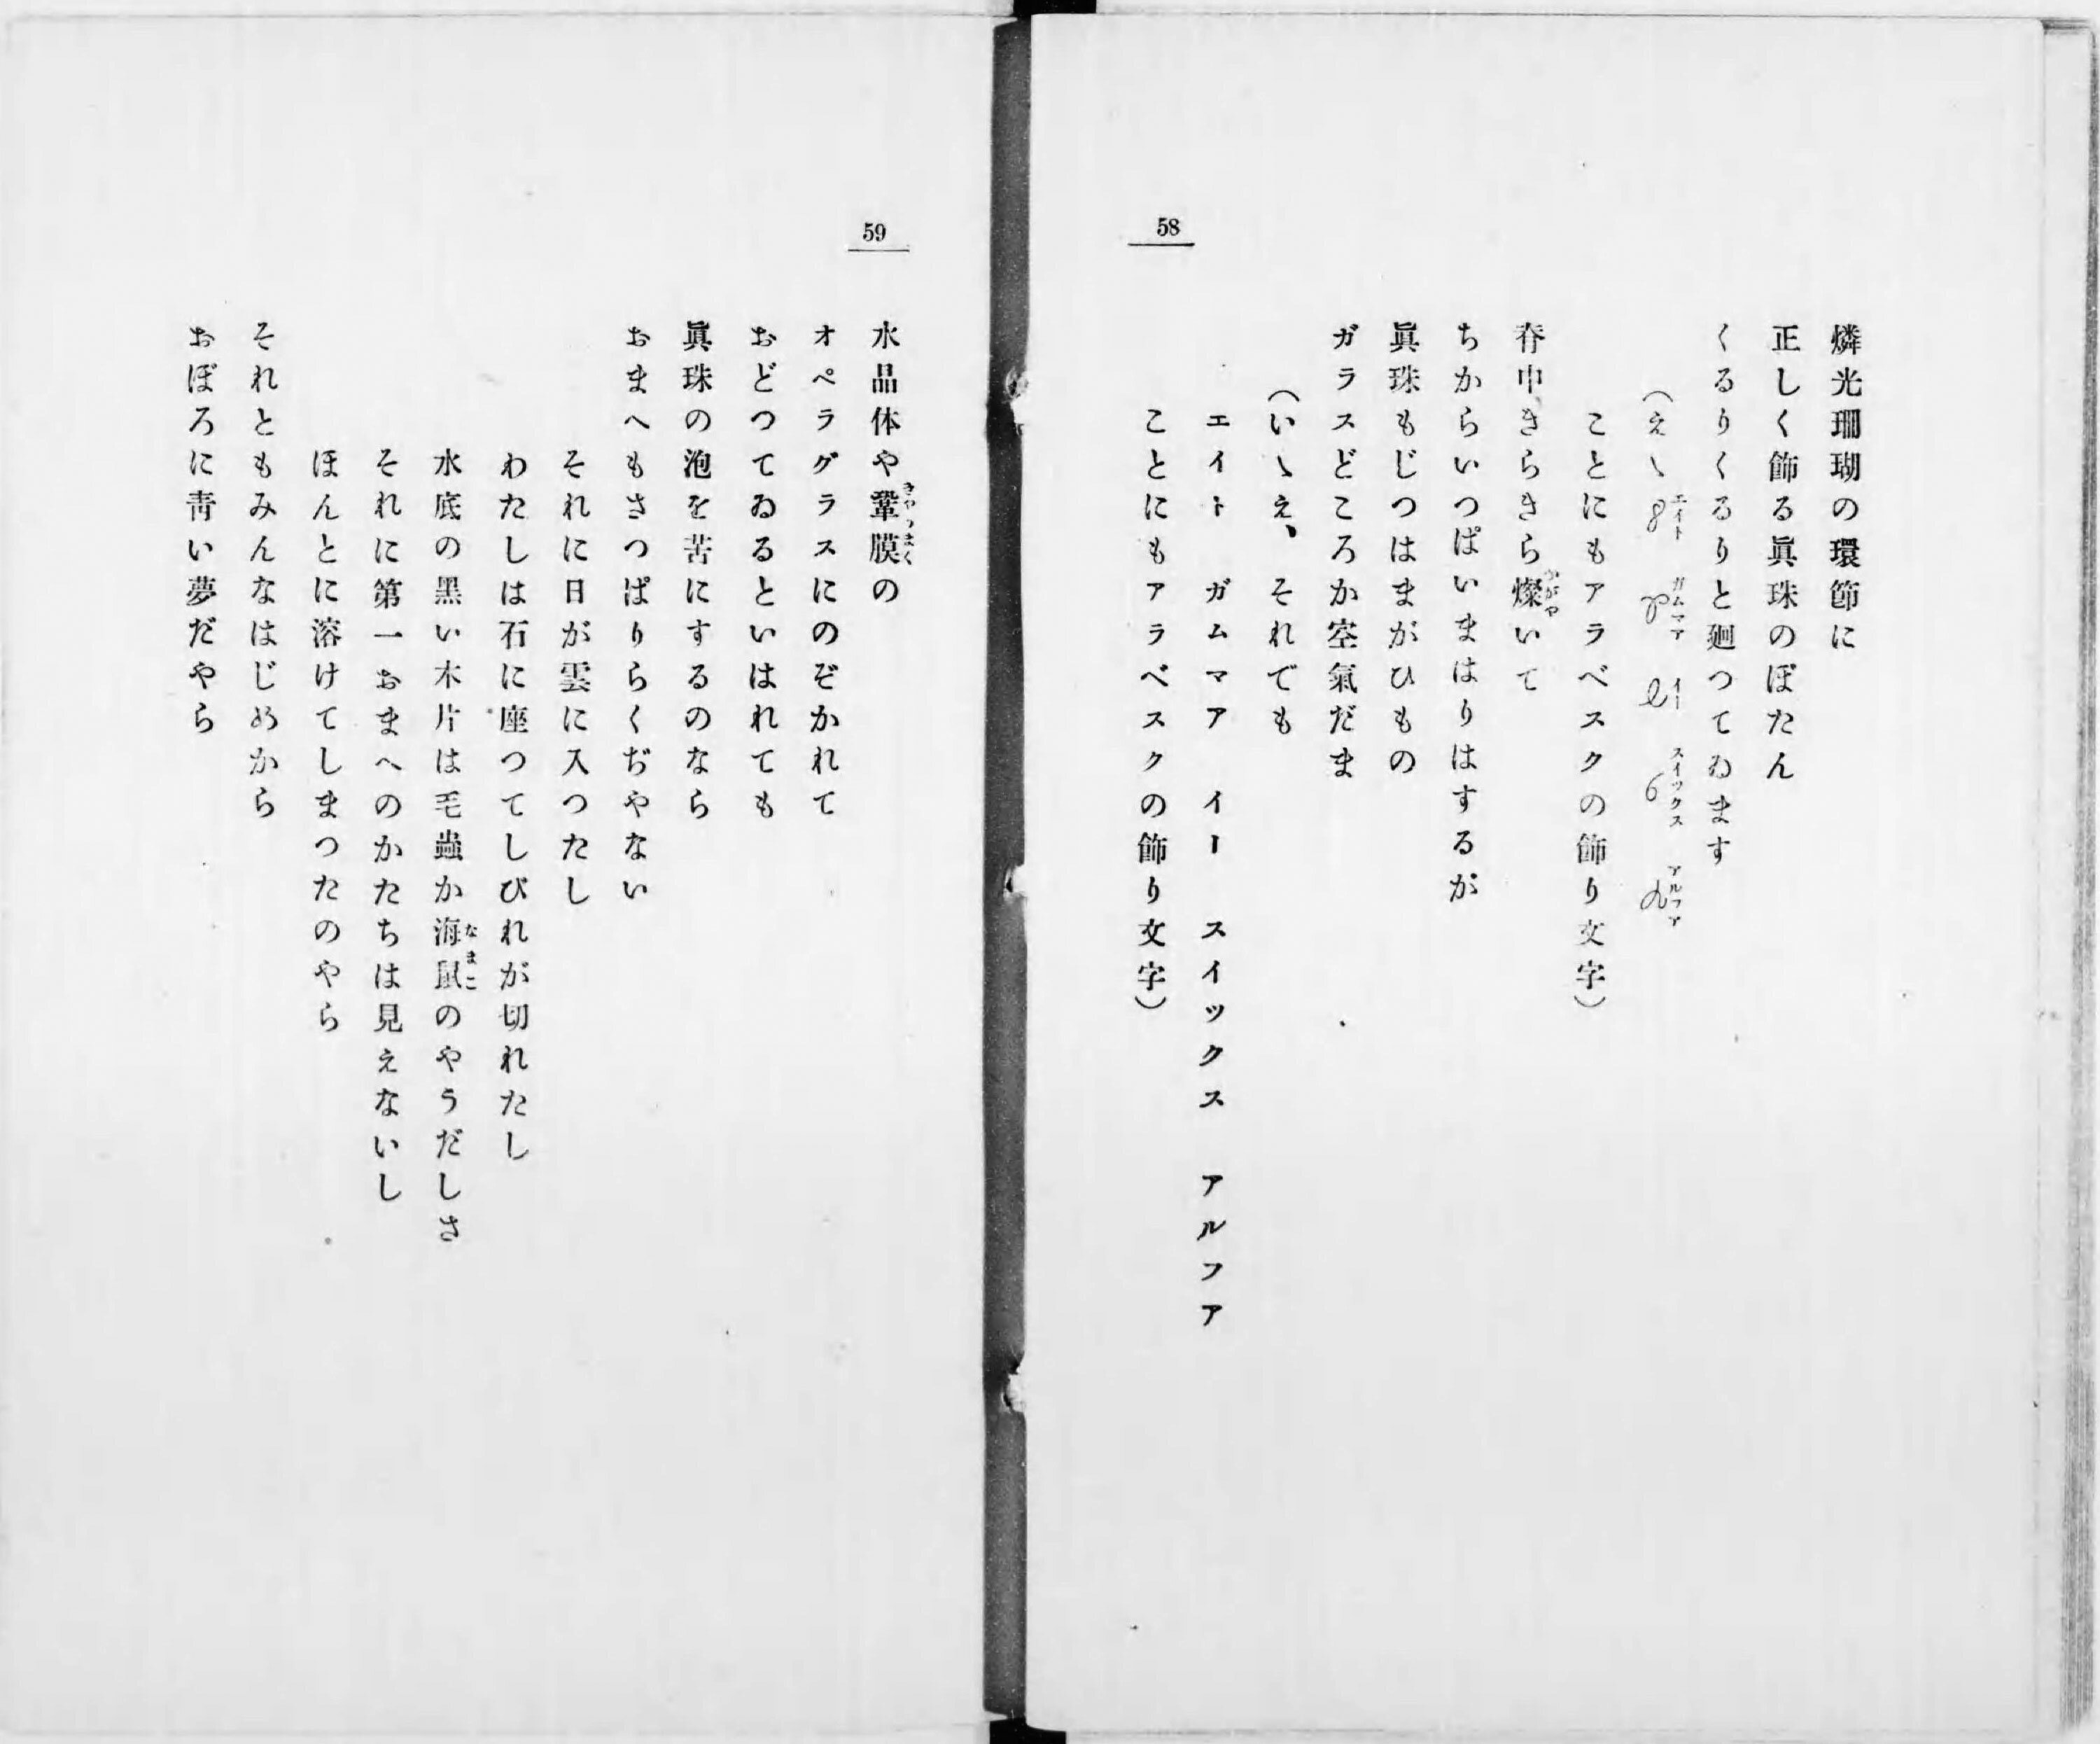 58
燐光珊瑚の環節に
正しく飾る眞珠のぼたん
くるりくるりと廻つてゐます
（えゝ 8 γ e 6 α
エイト ガムマア イー スイックス アルフア
ことにもアラベスクの飾り文字）
脊中きらきら燦いて
かがや
ちからいつぱいまはりはするが
眞珠もじつはまがひもの
ガラスどころか空氣だま
（いゝえ、それでも
エイト ガムマア イー スイックス アルフア
ことにもアラベスクの飾り文字）
59
水晶体や鞏膜の
きやうまく
オペラグラスにのぞかれて
おどつてゐるといはれても
眞珠の泡を苦にするのなら
おまへもさつぱりらくぢやない
それに日が雲に入つたし
わたしは石に座つてしびれが切れたし
水底の黑い木片は毛蟲か海鼠のやうだしさ
なまこ
それに第一おまへのかたちは見えないし
ほんとに溶けてしまつたのやら
それともみんなはじめから
おぼろに靑い夢だやら